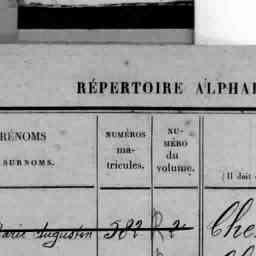 RÉPERTOIRE ALPHA
RÉNOMS
SURNOMS.
NUMÉROS
ma-
tricules.
NU-
MÉRO
du
volume.
(Il doit
Marie Augustin 582 R 2